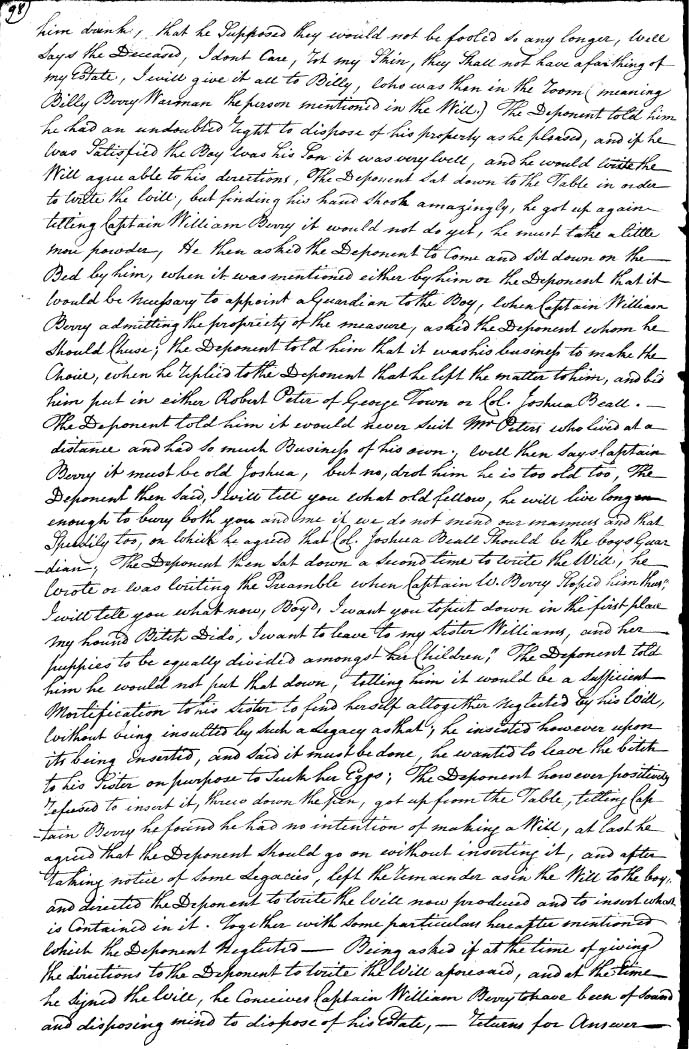 98
him drunk, that he Supposed they would not be fooled so any longer, Well
Says the Deceased, I dont Care, Rot my Skin, they Shall not have a farthing of
my Estate, I will give it all to Billy, who was then in the Room (meaning
Billy Berry Warman the person mentioned in the Will.) The Deponent told him
he had an undoubted Right to dispose of his property as he pleased, and if he
was Satisfied the Boy was his Son it was very well, and he would write the
Will agreeable to his directions, The Deponent Sat down to the Table in order
to write the Will, but finding his hand Shook amazingly, he got up again
telling Captain William Berry it would not do yet, he must take a little
more powder, He then asked the Deponent to Come and Sit down on the
Bed by him, when it was mentioned either by him or the Deponent that it
would be necessary to appoint a Guardian to the Boy, When Captain William
Berry admitting the propriety of the measure, asked the Deponent whom he
Should Chuse; the Deponent told him that it was his business to make the
Choice, when he Replied to the Deponent that he left the matter to him, and bid
him put in either Robert Peter of George Town or Col. Joshua Beall. —
The Deponent told him it would never Suit Mr. Peters who lived at a
distance and had So much Business of his own; Well then Says Captain
Berry it must be old Joshua, but no, drot him he is too old too, The
Deponent then Said, I will tell you what old fellow, he will live long
enough to bury both you and me if we do not mind our manners and that
Speedily too, on which he agreed that Col. Joshua Beall Should be the boys Guar
-dian; The Deponent then Sat down a Second time to write the Will, he
wrote or was writing the Preamble when Captain W. Berry Stoped him thus,"
I will tell you what now, Boyd, I want you to put down in the first place
my hound Bitch Dido, I want to leave to my Sister Williams, and her
puppies to be equally divided amongst her Children," The Deponent told
him he would not put that down, telling him it would be a Sufficient
Mortification to his Sister to find herself altogether neglected by his Will,
without being insulted by Such a Legacy as that; he insisted however upon
its being inserted, and Said it must be done, he wanted to leave the bitch
to his Sister on purpose to Suck her Eggs; The Deponent however positively
Refused to insert it, threw down the pen, got up from the Table, telling Cap
-tain Berry he found he had no intention of making a Will, at last he
agreed that the Deponent Should go on without inserting it, and after
taking notice of Some Legacies, left the Remainder as in the Will to the boy,
and directed the Deponent to write the Will now produced and to insert what
is Contained in it. Together with Some particulars hereafter mentioned
which the Deponent neglected — Being asked if at the time of giving
the directions to the Deponent to write the Will aforesaid, and at the time
he Signed the Will, he Conceives Captain William Berry to have been of Sound
and disposing mind to dispose of his Estate, — Returns for Answer —